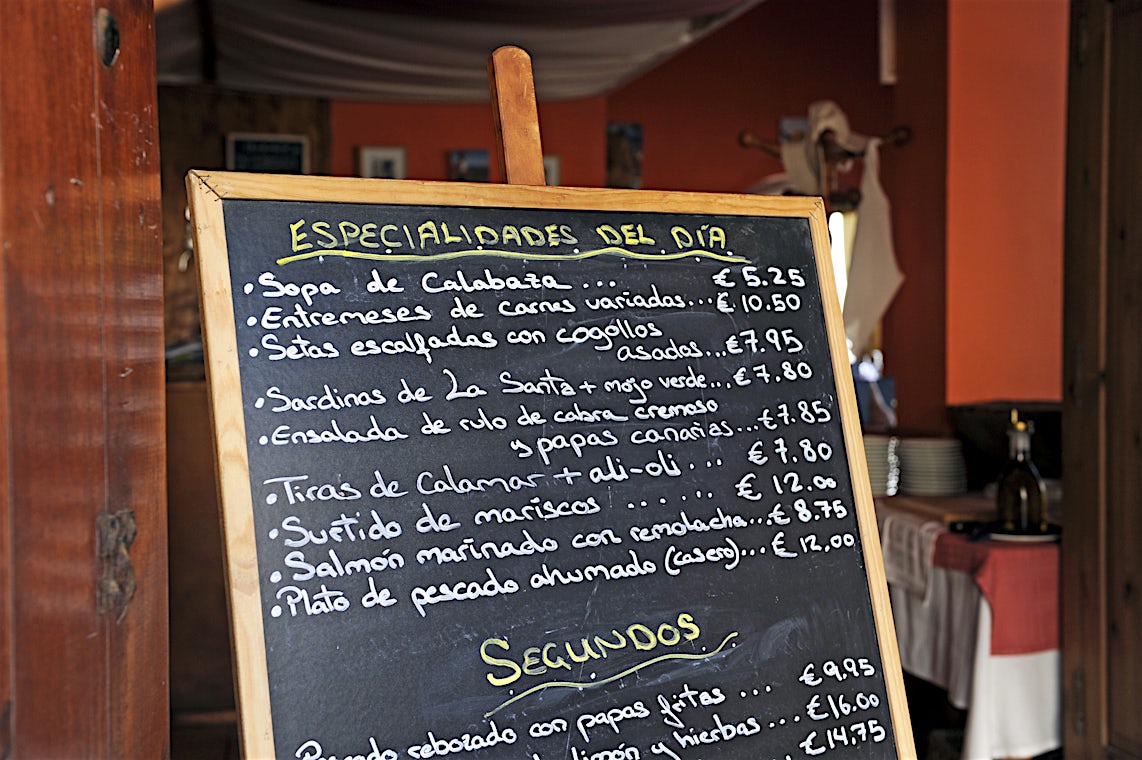 ESPECIALIDADES DEL DÍA
• Sopa de Calabaza ... € 5.25
• Entremeses de carnes variadas... € 10.50
• Setas escalfadas con cogollos
asados... € 7.95
• Sardinas de La Santa + mojo verde... € 7.80
• Ensalada de rulo de cabra cremoso
y papas canarias... € 7.85
• Tiras de Calamar + ali-oli ... € 7.80
• Surtido de mariscos ...... € 12.00
• Salmón marinado con remolacha... € 8.75
• Plato de pescado ahumado (casero)... € 12.00
SEGUNDOS
Pescado rebozado con papas fritas ... € 9.95
limón y hierbas ... € 16.00
€ 14.75